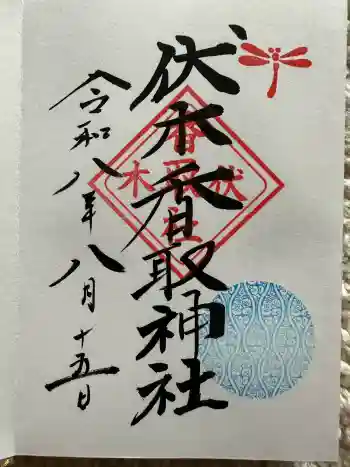 伏木香取神社
令和八年八月十五日
香
木取伏
社